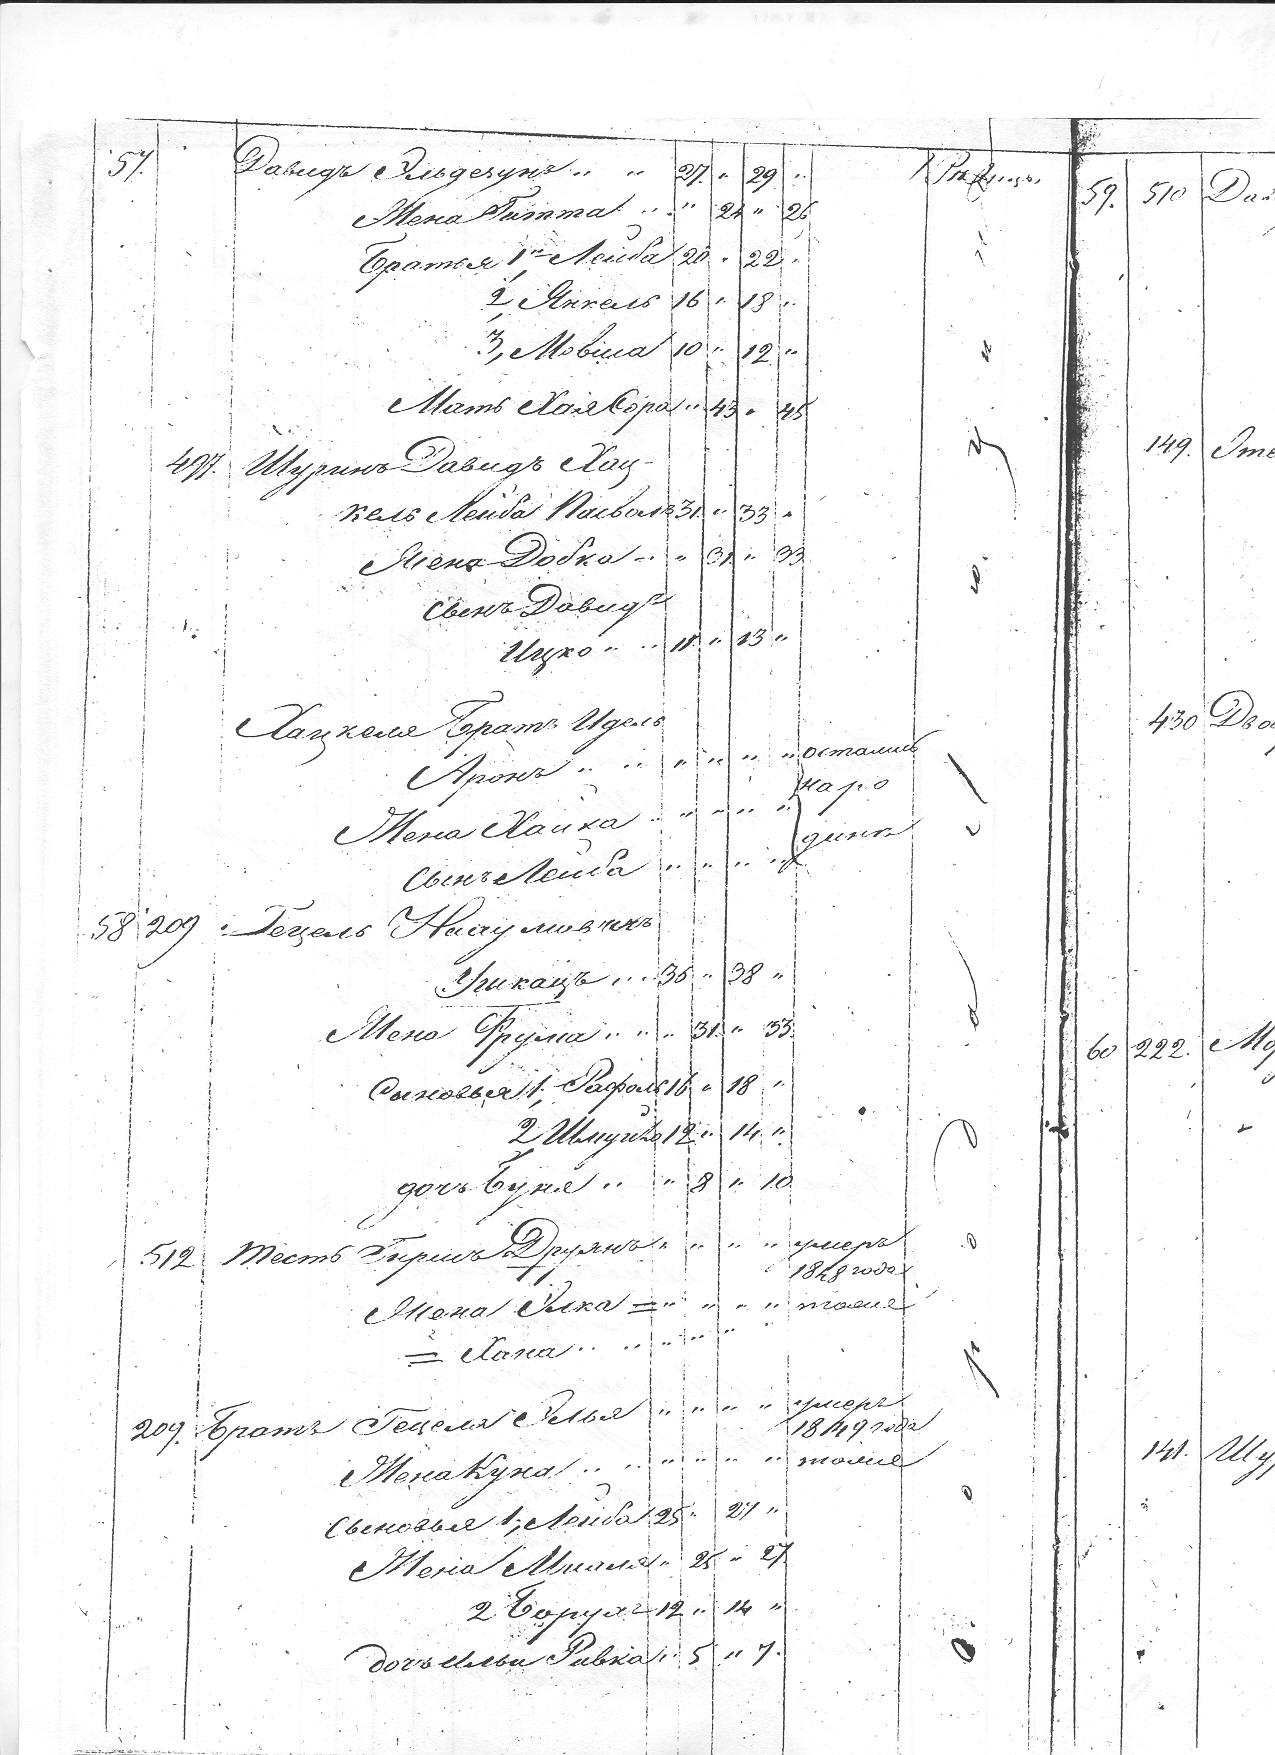 57. Давидъ Эльдегунъ " " 27. " 29 "
Жена Гитта " " 24 " 26
Братья 1й Лейба 20 " 22 "
2, Янкель 16 " 18 "
3, Мовша 10 " 12 "
Мать Хая Сора " 43 " 45
497. Шуринъ Давидъ Хац-
кель Лейба 31 " 33 "
Жена Добка " " 31 " 33
сынъ Давидъ
Ицко " " 11 " 13 "
Хацкеля Братъ Идель
Аронъ " " " " " " остались
на ро
Жена Хайка " " " " "
динѣ
сынъ Лейба " " " "
58 209 Гецель
" 36 " 38 "
Жена Фрума " " " 31. " 33.
сыновья 1, Рафоль 16 " 18 "
2, Шмуйло 12 " 14 "
дочь Буня " " 8 " 10
512 тесть Гиршъ Друянъ " " " " умеръ
1848 года
Жена Элка = " " " " тоже
= Хана " " " " "
209. Братъ Гецеля Элья " " " " умеръ
1849 года
Жена Куна " " " " " " тоже
сыновья 1, Лейба 25 " 27 "
Жена " 25 " 27
2 Борухъ 12 " 14 "
дочь Ильи Ривка " 5 " 7.
59. 510
149.
430
60 222.
141.